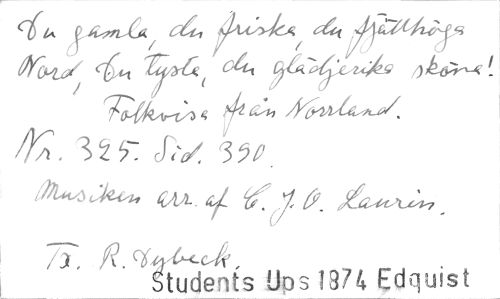 Du gamla, du friska, du fjällhöga
Nord, Du tysta, du glädjerika sköna!
Folkvisa från Norrland.
Nr. 325. Sid. 390.
Musiken arr. af C. J. O. Laurin.
Tx. R. Dybeck.
Students Ups 1874 Edquist